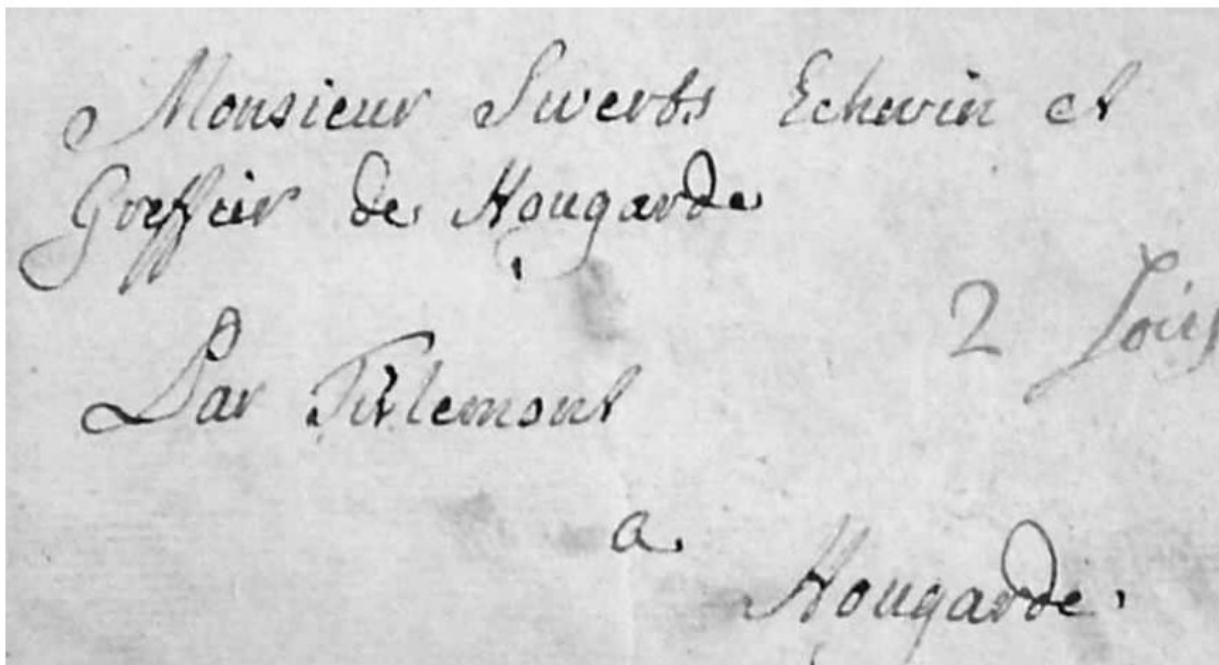 Monsieur Swerts Echevin et
Greffier de Hougarde
Par Tirlemont
2 Soirs
a
Hougarde.